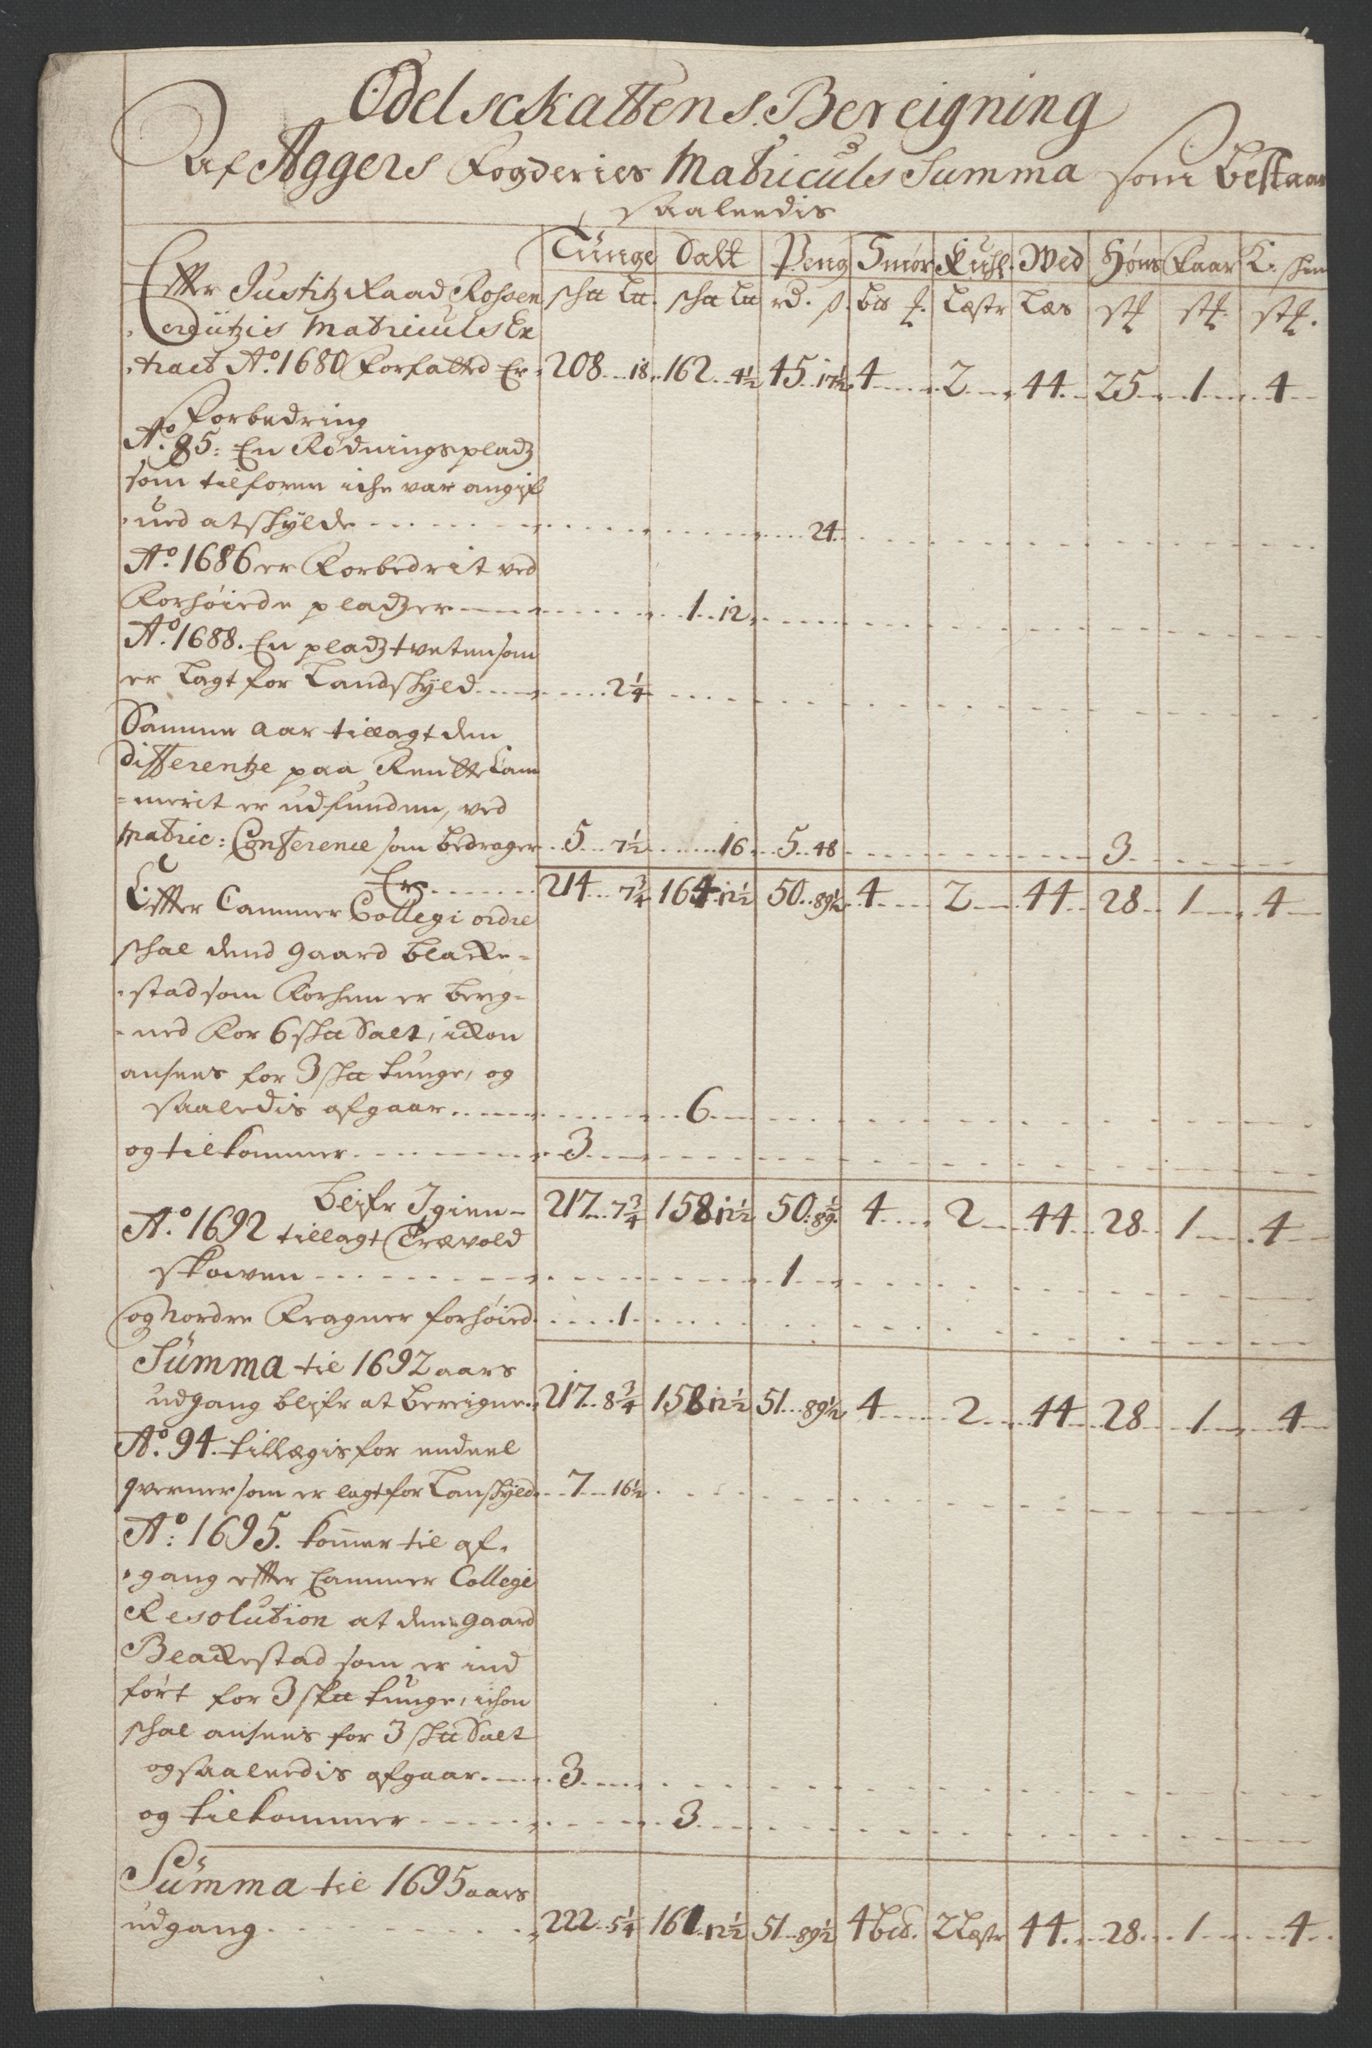 Odelsckattens Bereigning
Af Aggers Fogderies Matriculs Summa som bestaar
saaledis
Tunge Salt Peng Smør Kuhl. Wed Høns Faar K: skin
Effter Justitz Raad Rossen sch℔ L℔. sch℔ L℔ rd. s. bis ℔. Læstr Læs stk stk. stk.
Creutzis Matriculs Ex
tract Ao. 1680 Forfatted Er. 208 . 18. 162 . 4½ 45 . 17½. 4 2 44 25 1 4
Forbedring
Ao. 85: En Rødningspladz
som tilforen iche var angif
ued at skylde 24.
Ao. 1686 er Forbedrit ved
Forhøiede pladzer 1 . 12.
Ao. 1688. En pladz tveten som
er Lagt for Landskyld 2¼
Samme aar tillagt den
differentze paa Rentte Cam
merit er udfunden, ved
Matric: Conference som bedrager 5 . 7½ 16 5 . 48 3
Er 214 . 7¾ 164 . 12½ 50 . 89½ 4 2 44 28 1 4
Effter Cammer Collegi ordre
schal dend gaard blacke-
stad som Forhen er bereg-
ned For 6 sch℔ Salt, ickon
ansees for 3 sch℔ tunge, og
saaledis afgaar 6
og tilkommer 3
blifr Igien 217 . 7¾ 158 . 12½ 50 : 89½ 4 2 44 28 1 4
Ao. 1692 tillagt Trævold
skowen 1
og Nordre Kragner forhøied 1
Summa til 1692 aars
udgang blifr at bereigne. 217 . 8¾ 158 . 12½ 51 . 89½ 4 2 44 28 1 4
Ao. 94. tillægis for endeel
qverner som er lagt for Lanskyld 7 . 16½
Ao: 1695. kommer til af-
gang effter Cammer Collegi
Resolution at den gaard
Blackestad som er ind
ført for 3 sk℔ tunge, ichon
schal ansees for 3 sch℔ Salt
og saaledis afgaar 3
og tilkommer 3
Summa til 1695 aars
udgang 222 . 5¼ 161 . 12½ 51 . 89½ 4 bis. 2 Læstr 44 28 1 4